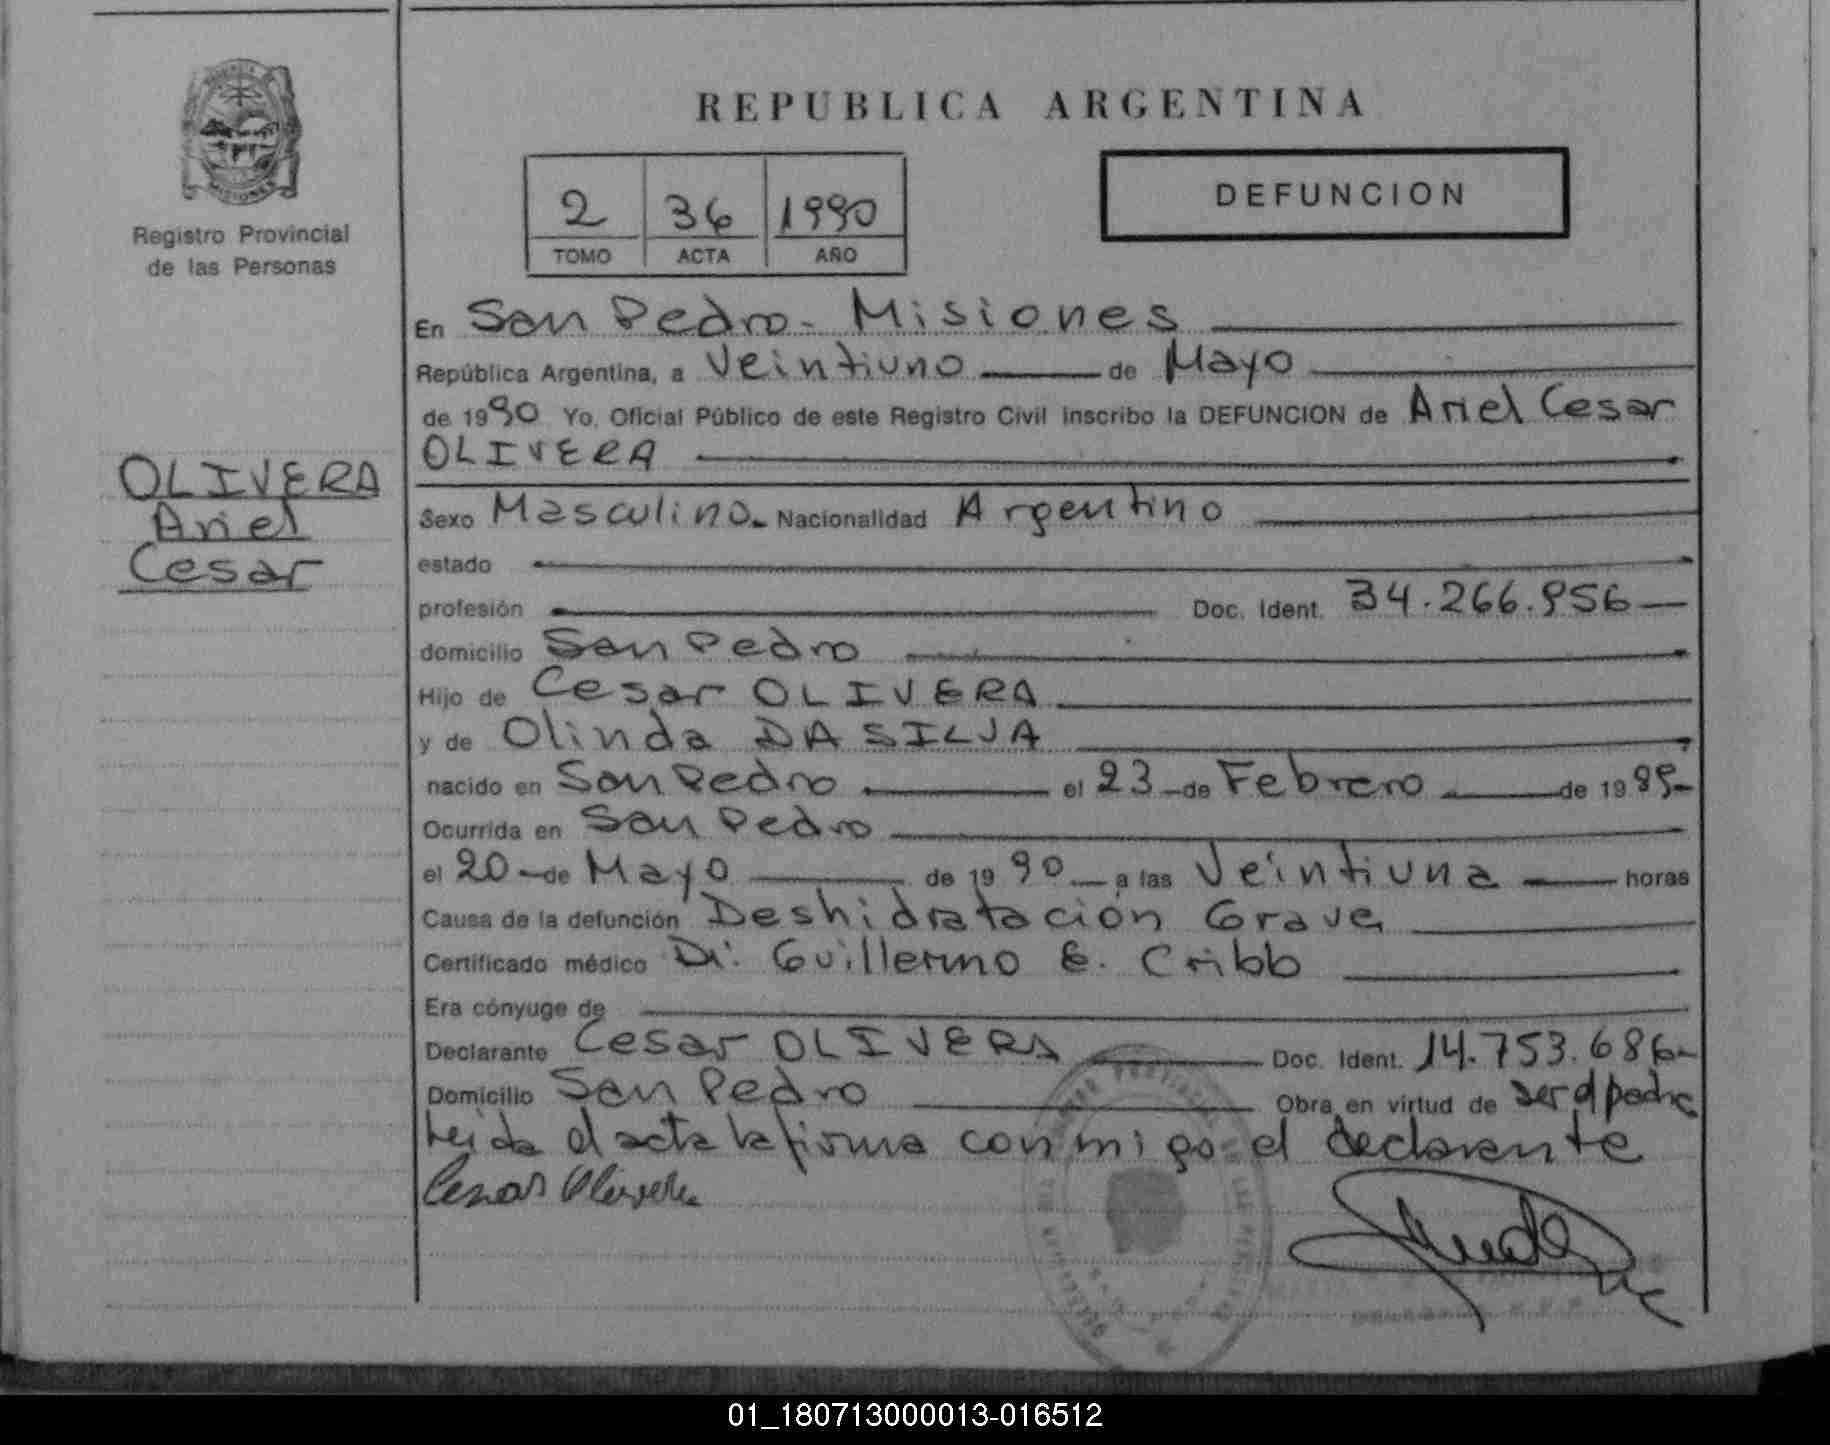 PROVINCIA DE
MISIONES
Registro Provincial
de las Personas
OLIVERA
Ariel
Cesar
REPUBLICA ARGENTINA
2 36 1990
TOMO ACTA AÑO
DEFUNCION
En San Pedro - Misiones
República Argentina, a Veintiuno de Mayo
de 1990 Yo, Oficial Público de este Registro Civil inscribo la DEFUNCION de Ariel Cesar
OLIVERA
Sexo Masculino. Nacionalidad Argentino
estado
profesión Doc. Ident. 34.266.956
domicilio San Pedro
Hijo de Cesar OLIVERA
y de Olinda DA SILVA
nacido en San Pedro el 23 de Febrero de 1989
Ocurrida en San Pedro
el 20 de Mayo de 1990 a las Veintiuna horas
Causa de la defunción Deshidratación Grave
Certificado médico Dr. Guillermo E. Cribb
Era cónyuge de
Declarante Cesar OLIVERA Doc. Ident. 14.753.686
Domicilio San Pedro Obra en virtud de ser el padre
Leida el acta la firma conmigo el declarante
Cesar Olivera
01_180713000013-016512